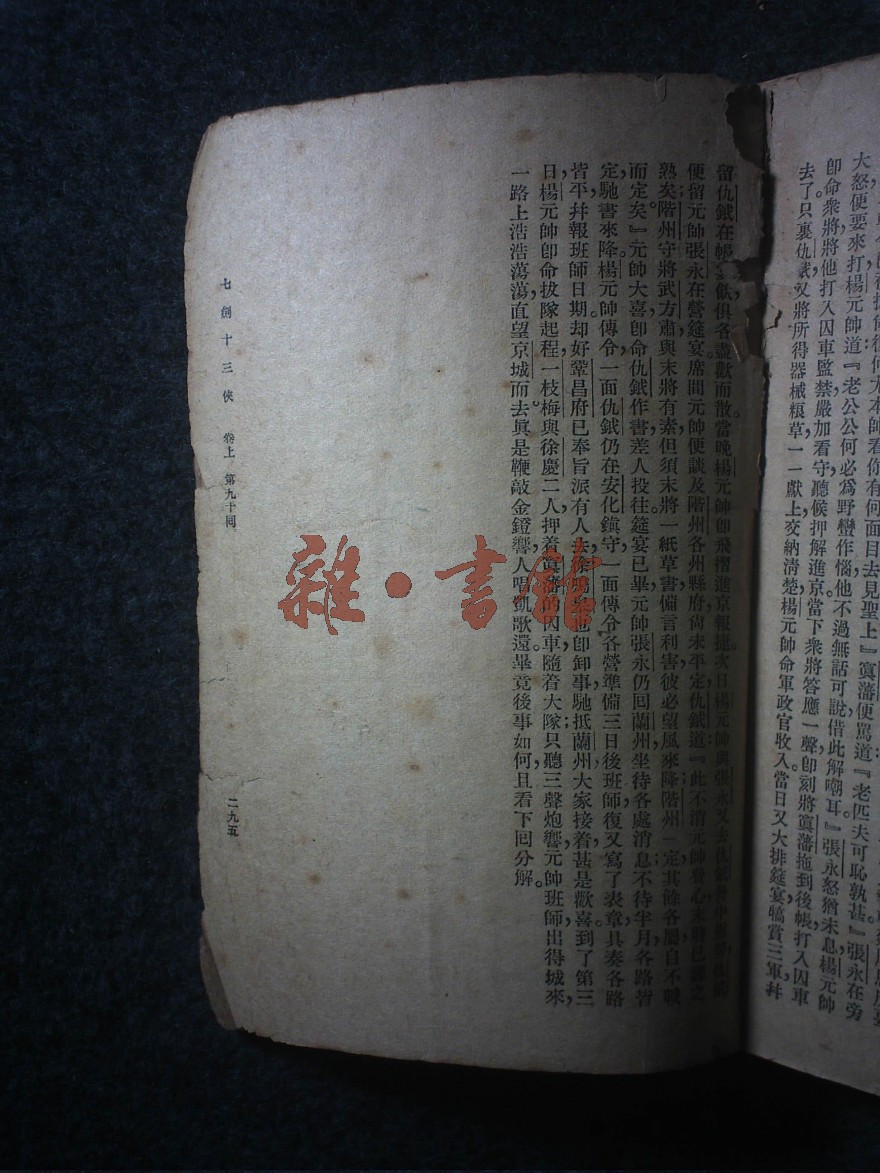 大怒便要來打楊元帥道『老公公何必爲野蠻作惱他不過無話可說借此解嘲耳』張永怒猶未息楊元帥
卽命衆將將他打入囚車監禁嚴加看守聽候押解進京當下衆將答應一聲卽刻將寘藩拖到後帳打入囚車
去了只裹仇鉞又將所得器械粮草一一獻上交納清楚楊元帥命軍政官收入當日又大排筵宴犒賞三軍幷
留仇鉞在帳飲俱各盡歡而散。當晚楊元帥卽飛摺進京報捷。次日楊元帥與張永又去
便留元帥張永在營筵宴。席間元帥便談及階州各州縣府尙未平定。仇鉞道『此不消元帥費心末將已
熟矣。階州守將武方肅與末將有素但須末將一紙草書備言利害彼必望風來降階州一定其餘各屬自不戰
而定矣。』元帥大喜卽命仇鉞作書差人投往。筵宴已畢元帥張永仍囘蘭州坐待各處消息不待半月各路皆
定馳書來降。楊元帥傳令一面仇鉞仍在安化鎮守一面傳令各營準備三日後班師復又寫了表章具奏各路
皆平幷報班師日期。却好鞏昌府已奉旨派有人去徐鳴臯也卽卸事馳抵蘭州大家接着甚是歡喜到了第三
日楊元帥卽命拔隊起程一枝梅與徐慶二人押着寘藩的囚車隨着大隊只聽三聲炮響元帥班師出得城來
一路上浩浩蕩蕩直望京城而去。眞是鞭敲金鐙響人唱凱歌還。畢竟後事如何且看下囘分解。
七劍十三俠 卷上 第九十囘
二九五
雜·書館